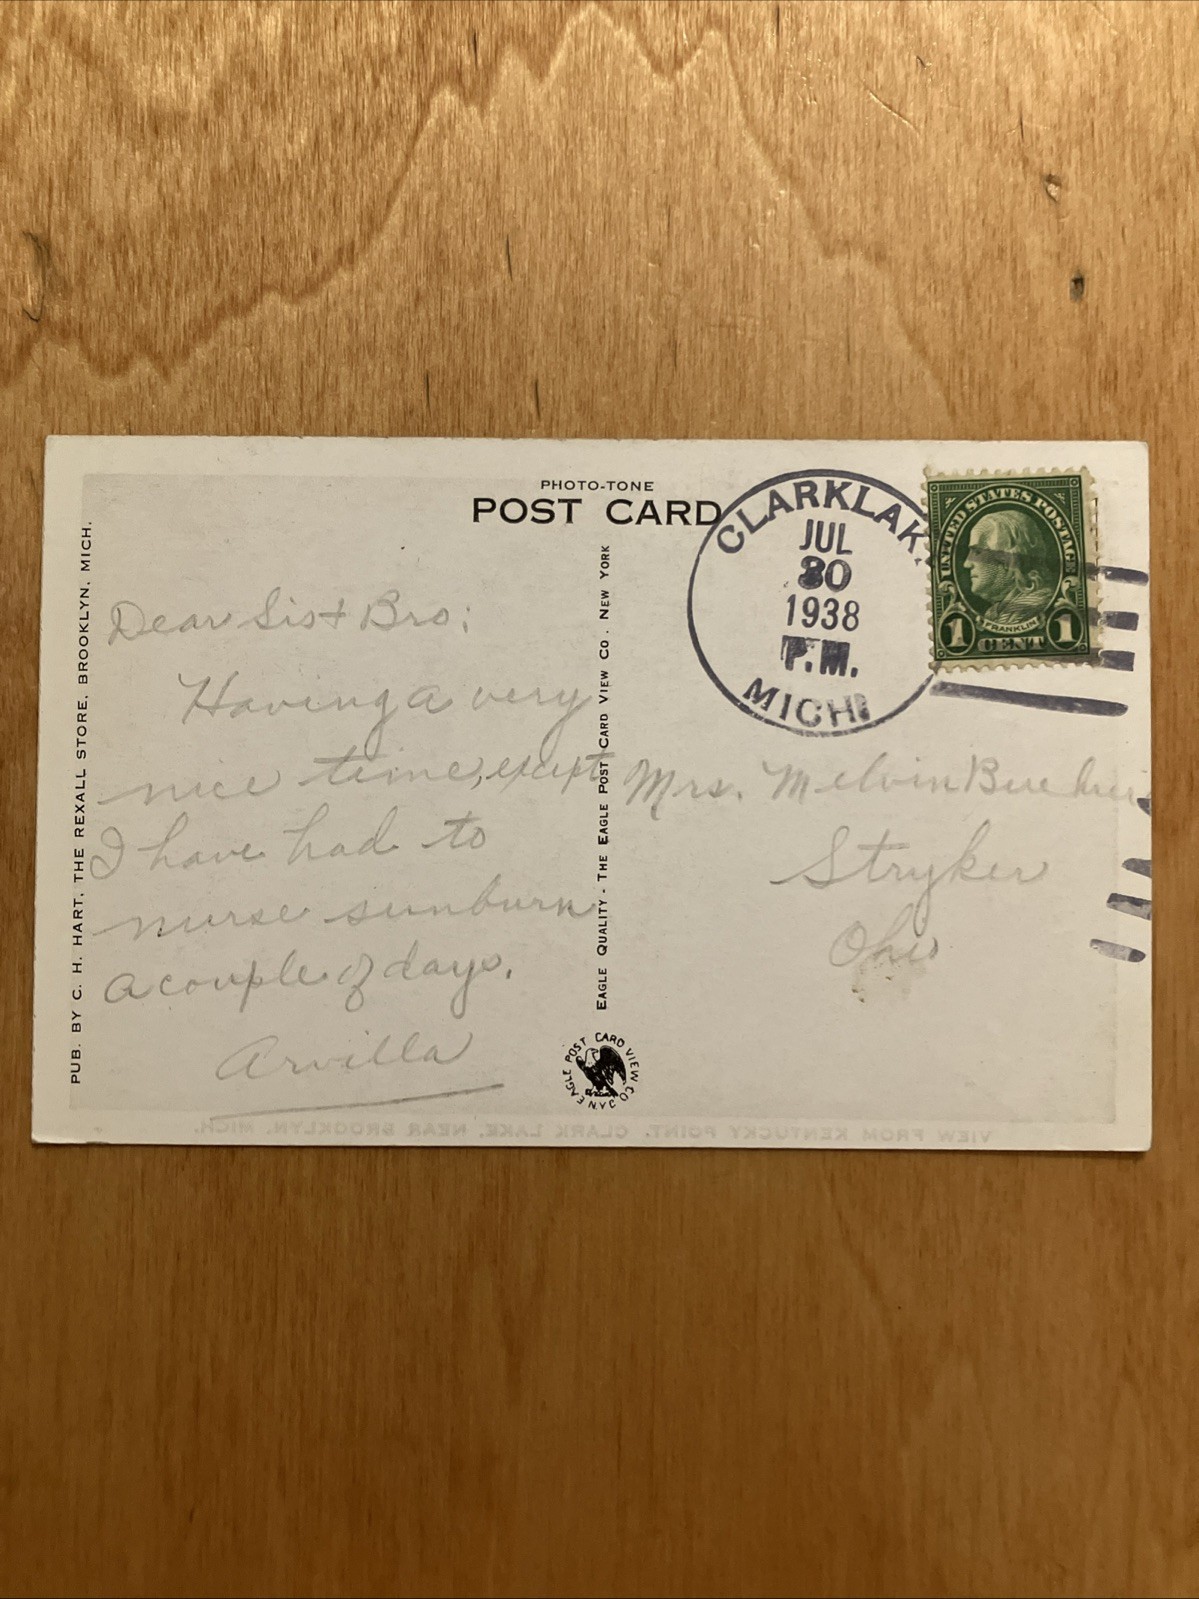 PHOTO-TONE
POST CARD
CLARKLAK
JUL
30
1938
P.M.
MICH
UNITED STATES POSTAGE
FRANKLIN
1 CENT 1
PUB. BY C. H. HART, THE REXALL STORE, BROOKLYN, MICH.
Dear Sis + Bro;
Having a very
nice time, except
I have had to
nurse sunburn
a couple of days.
Arvilla
EAGLE QUALITY - THE EAGLE POST CARD VIEW CO. NEW YORK
EAGLE POST CARD VIEW CO. N.Y.
Mrs. Melvin
Stryker
Ohio
VIEW FROM KENTUCKY POINT, CLARK LAKE, NEAR BROOKLYN, MICH.